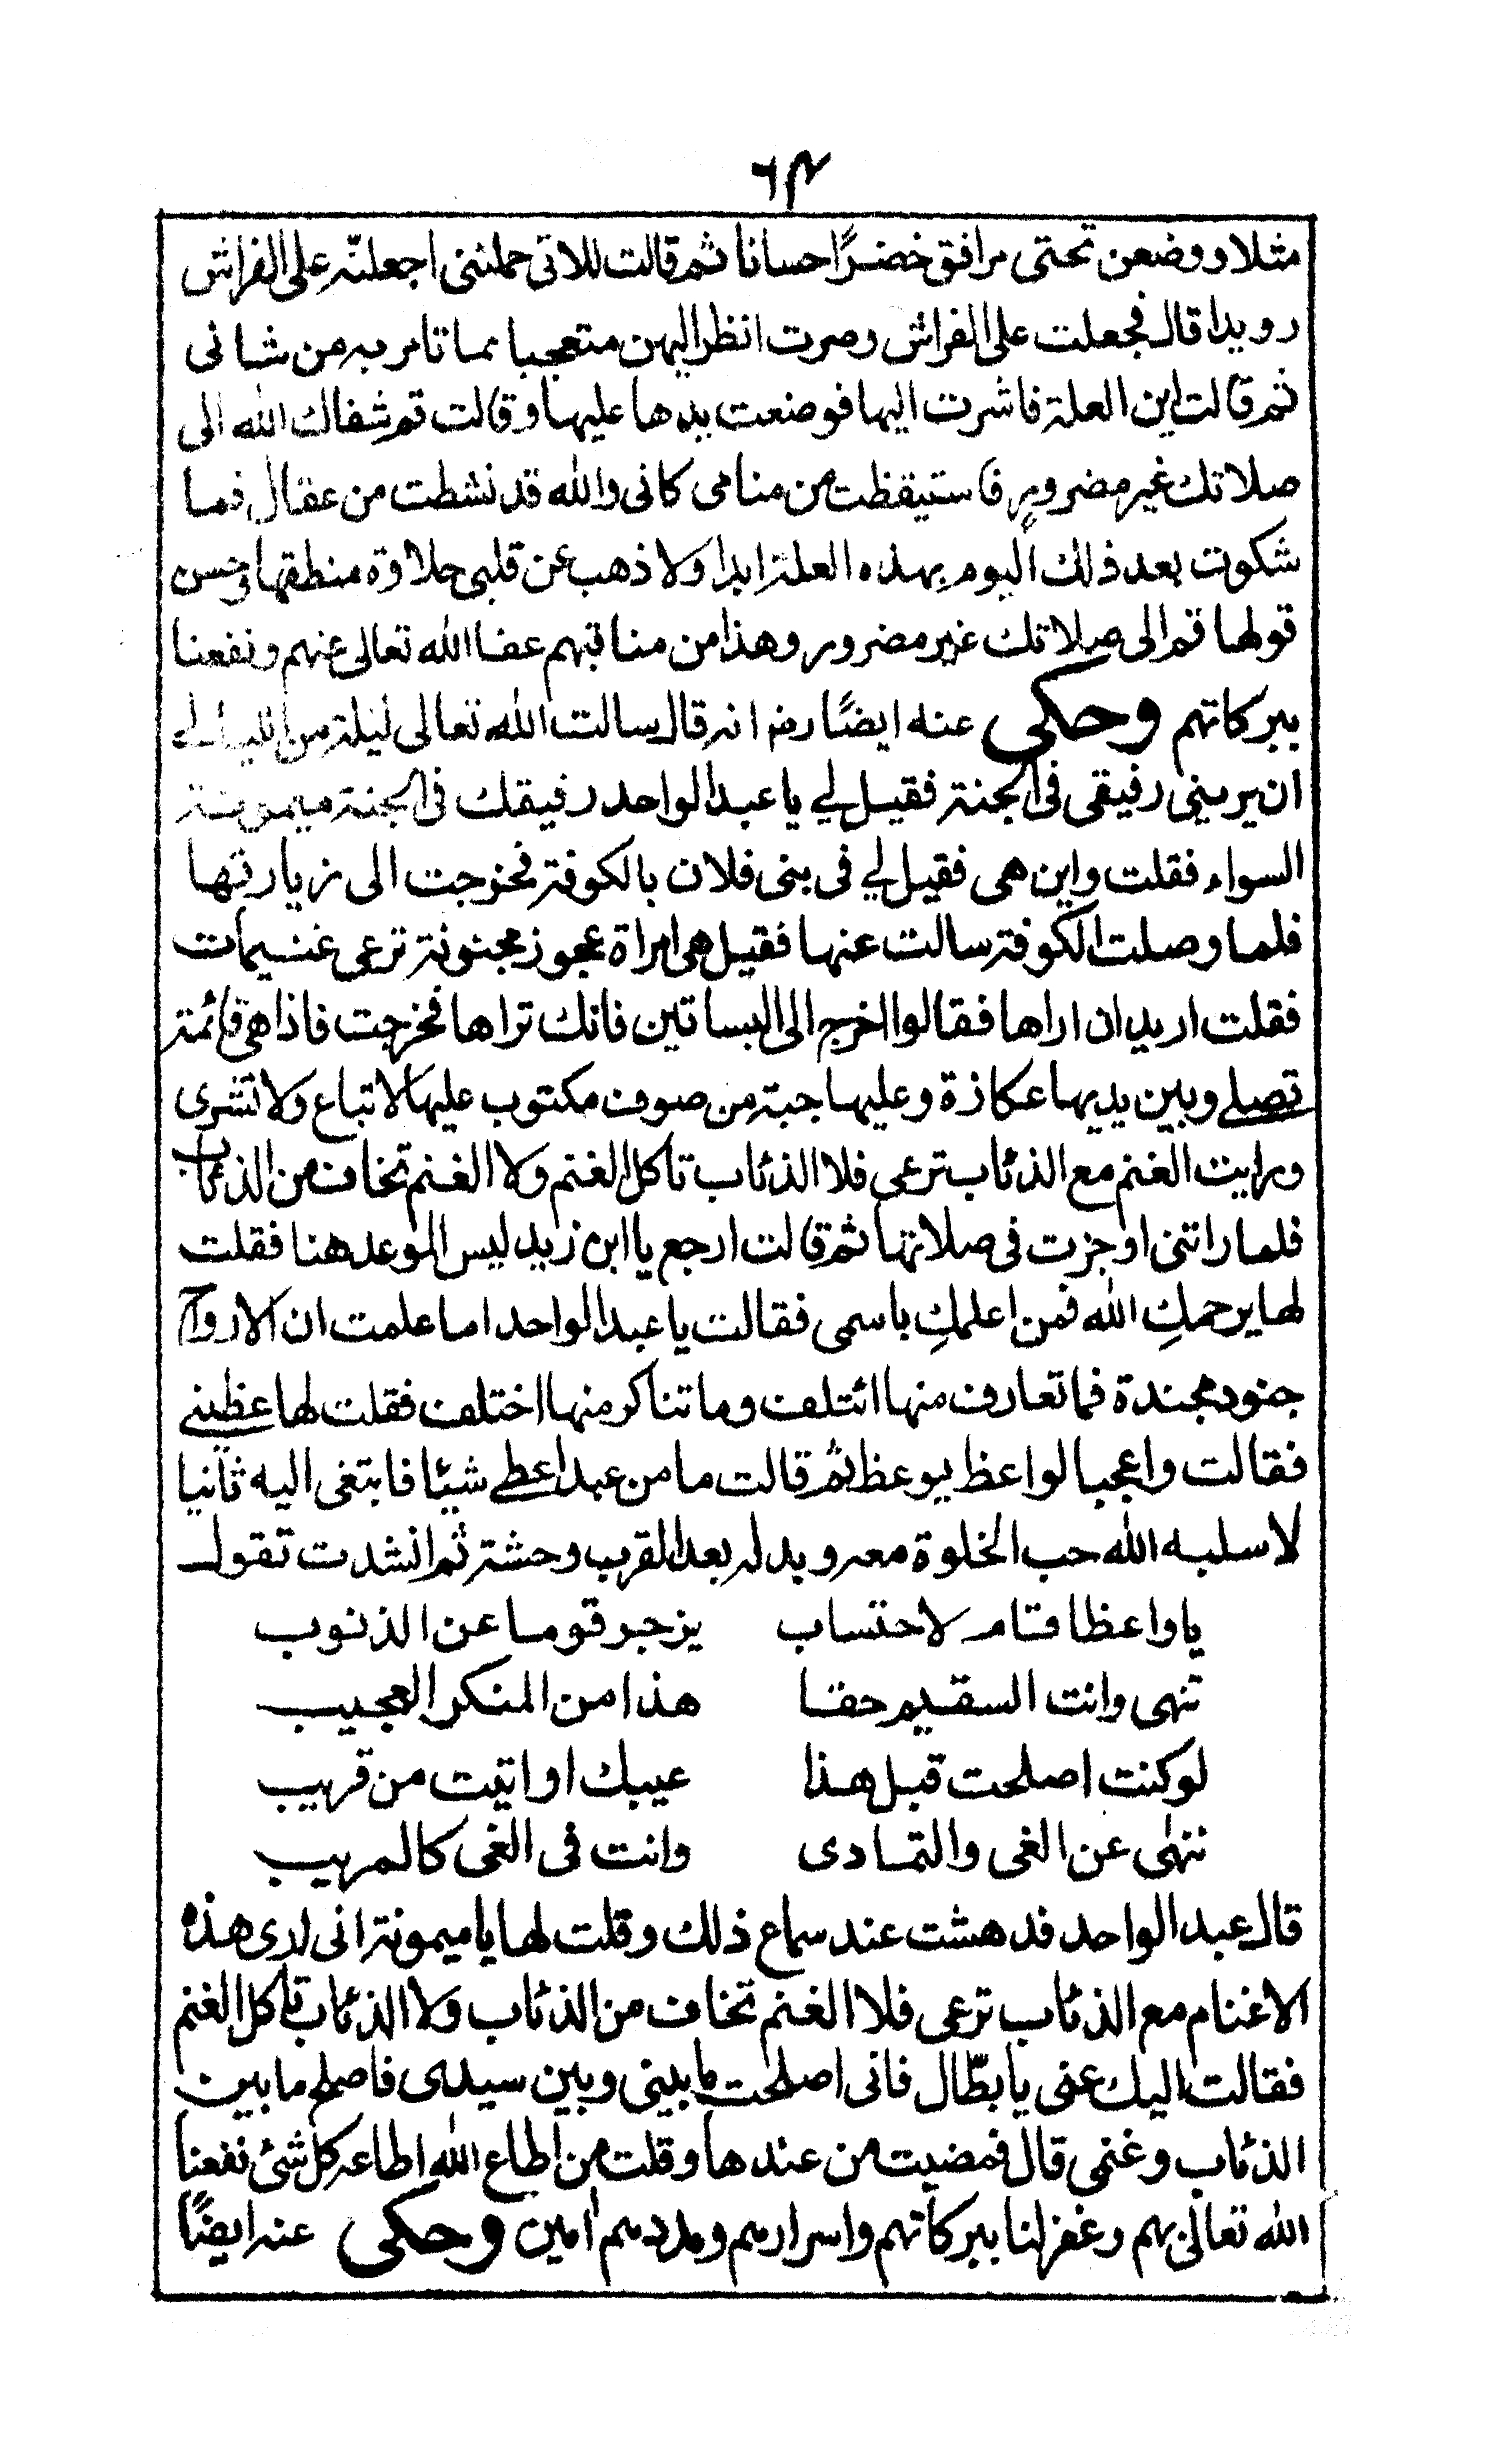 ٦٤
مثلا ووضعن تحتى مرافق خضرًا حسانا ثم قالت للاتى حملننى اجعلنّه على الفراش
رويدا قال فجعلت على الفراش وصرت انظر اليهن متعجبا مما تامر به من شانى
ثم قالت اين العلة فاشرت اليها فوضعت يدها عليها وقالت قم شفاك الله الى
صلاتك غير مضرور فاستيقظت من منامى كانى والله قد نشطت من عقال فما
شكوت بعد ذلك اليوم بهذه العلة ابدا ولا ذهب عن قلبى حلاوة منطقها فى حسن
قولها قم الى صلاتك غير مضرور وهذا من مناقبهم عفا الله تعالى عنهم ونفعنا
ببركاتهم وحكى عنه ايضًا رضـ انه قال سالت الله تعالى ليلة من الليالى
ان يرينى رفيقى فى الجنة فقيل لى يا عبد الواحد رفيقك فى الجنة ميمونة
السواء فقلت واين هى فقيل لى فى بنى فلان بالكوفة فخرجت الى زيارتها
فلما وصلت الكوفة سالت عنها فقيل هى امراة عجوز مجنونة ترعى غنيمات
فقلت اريد ان اراها فقالوا اخرج الى البساتين فانك تراها فخرجت فاذا هى قائمة
تصلى وبين يديها عكازة وعليها جبة من صوف مكتوب عليها لا تباع ولا تشرى
ورايت الغنم مع الذئاب ترعى فلا الذئاب تاكل الغنم ولا الغنم تخاف من الذئاب
فلما راتنى اوجزت فى صلاتها ثم قالت ارجع يا ابن زيد ليس الموعد هنا فقلت
لها يرحمكِ الله فمن اعلمكِ باسمى فقالت يا عبد الواحد اما علمت ان الارواح
جنود مجندة فما تعارف منها ائتلف وما تناكر منها اختلف فقلت لها عظينى
فقالت واعجبا لواعظ يوعظ ثم قالت ما من عبد اعطى شيئا فابتغى اليه ثانيا
لا سلبه الله حب الخلوة معه وبدله بعد القرب وحشة ثم انشدت تقول
يا واعظا قام لاحتساب يزجر قوما عن الذنوب
تنهى وانت السقيم حقا هذا من المنكر العجيب
لو كنت اصلحت قبل هذا عيبك او اتيت من قريب
تنهى عن الغى والتمادى وانت فى الغى كالمريب
قال عبد الواحد فدهشت عند سماع ذلك وقلت لها يا ميمونة انى لارى هذه
الاغنام مع الذئاب ترعى فلا الغنم تخاف من الذئاب ولا الذئاب تاكل الغنم
فقالت اليك عنى يا بطّال فانى اصلحت ما بينى وبين سيدى فاصلح ما بين
الذئاب وغنمى قال فمضيت من عندها وقلت من اطاع الله اطاعه كل شئ نفعنا
الله تعالى بهم وغفر لنا ببركاتهم واسرارهم ومددهم امين وحكى عنه ايضًا